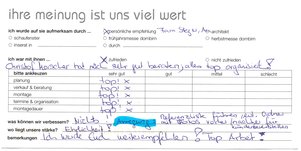 ihre meinung ist uns viel wert
ich wurde auf sie aufmerksam durch ... x persönliche empfehlung Fam. architekt
○ schaufenster ○ frühjahrsmesse dornbirn ○ herbstmesse dornbirn
○ inserat in ○ durch
ich war mit ihnen ... x zufrieden ○ nicht zufrieden
hat mich sehr gut beraten, alles top organisiert!
bitte ankreuzen sehr gut gut mittel schlecht
planung top!
verkauf & beratung top!
montage top!
termine & organisation top!
montageteam top!
was können wir verbessern? Nichts
wo liegt unsere stärke? Ehrlichkeit!
bemerkungen Ich werde Euch weiterempfehlen! Top Arbeit!